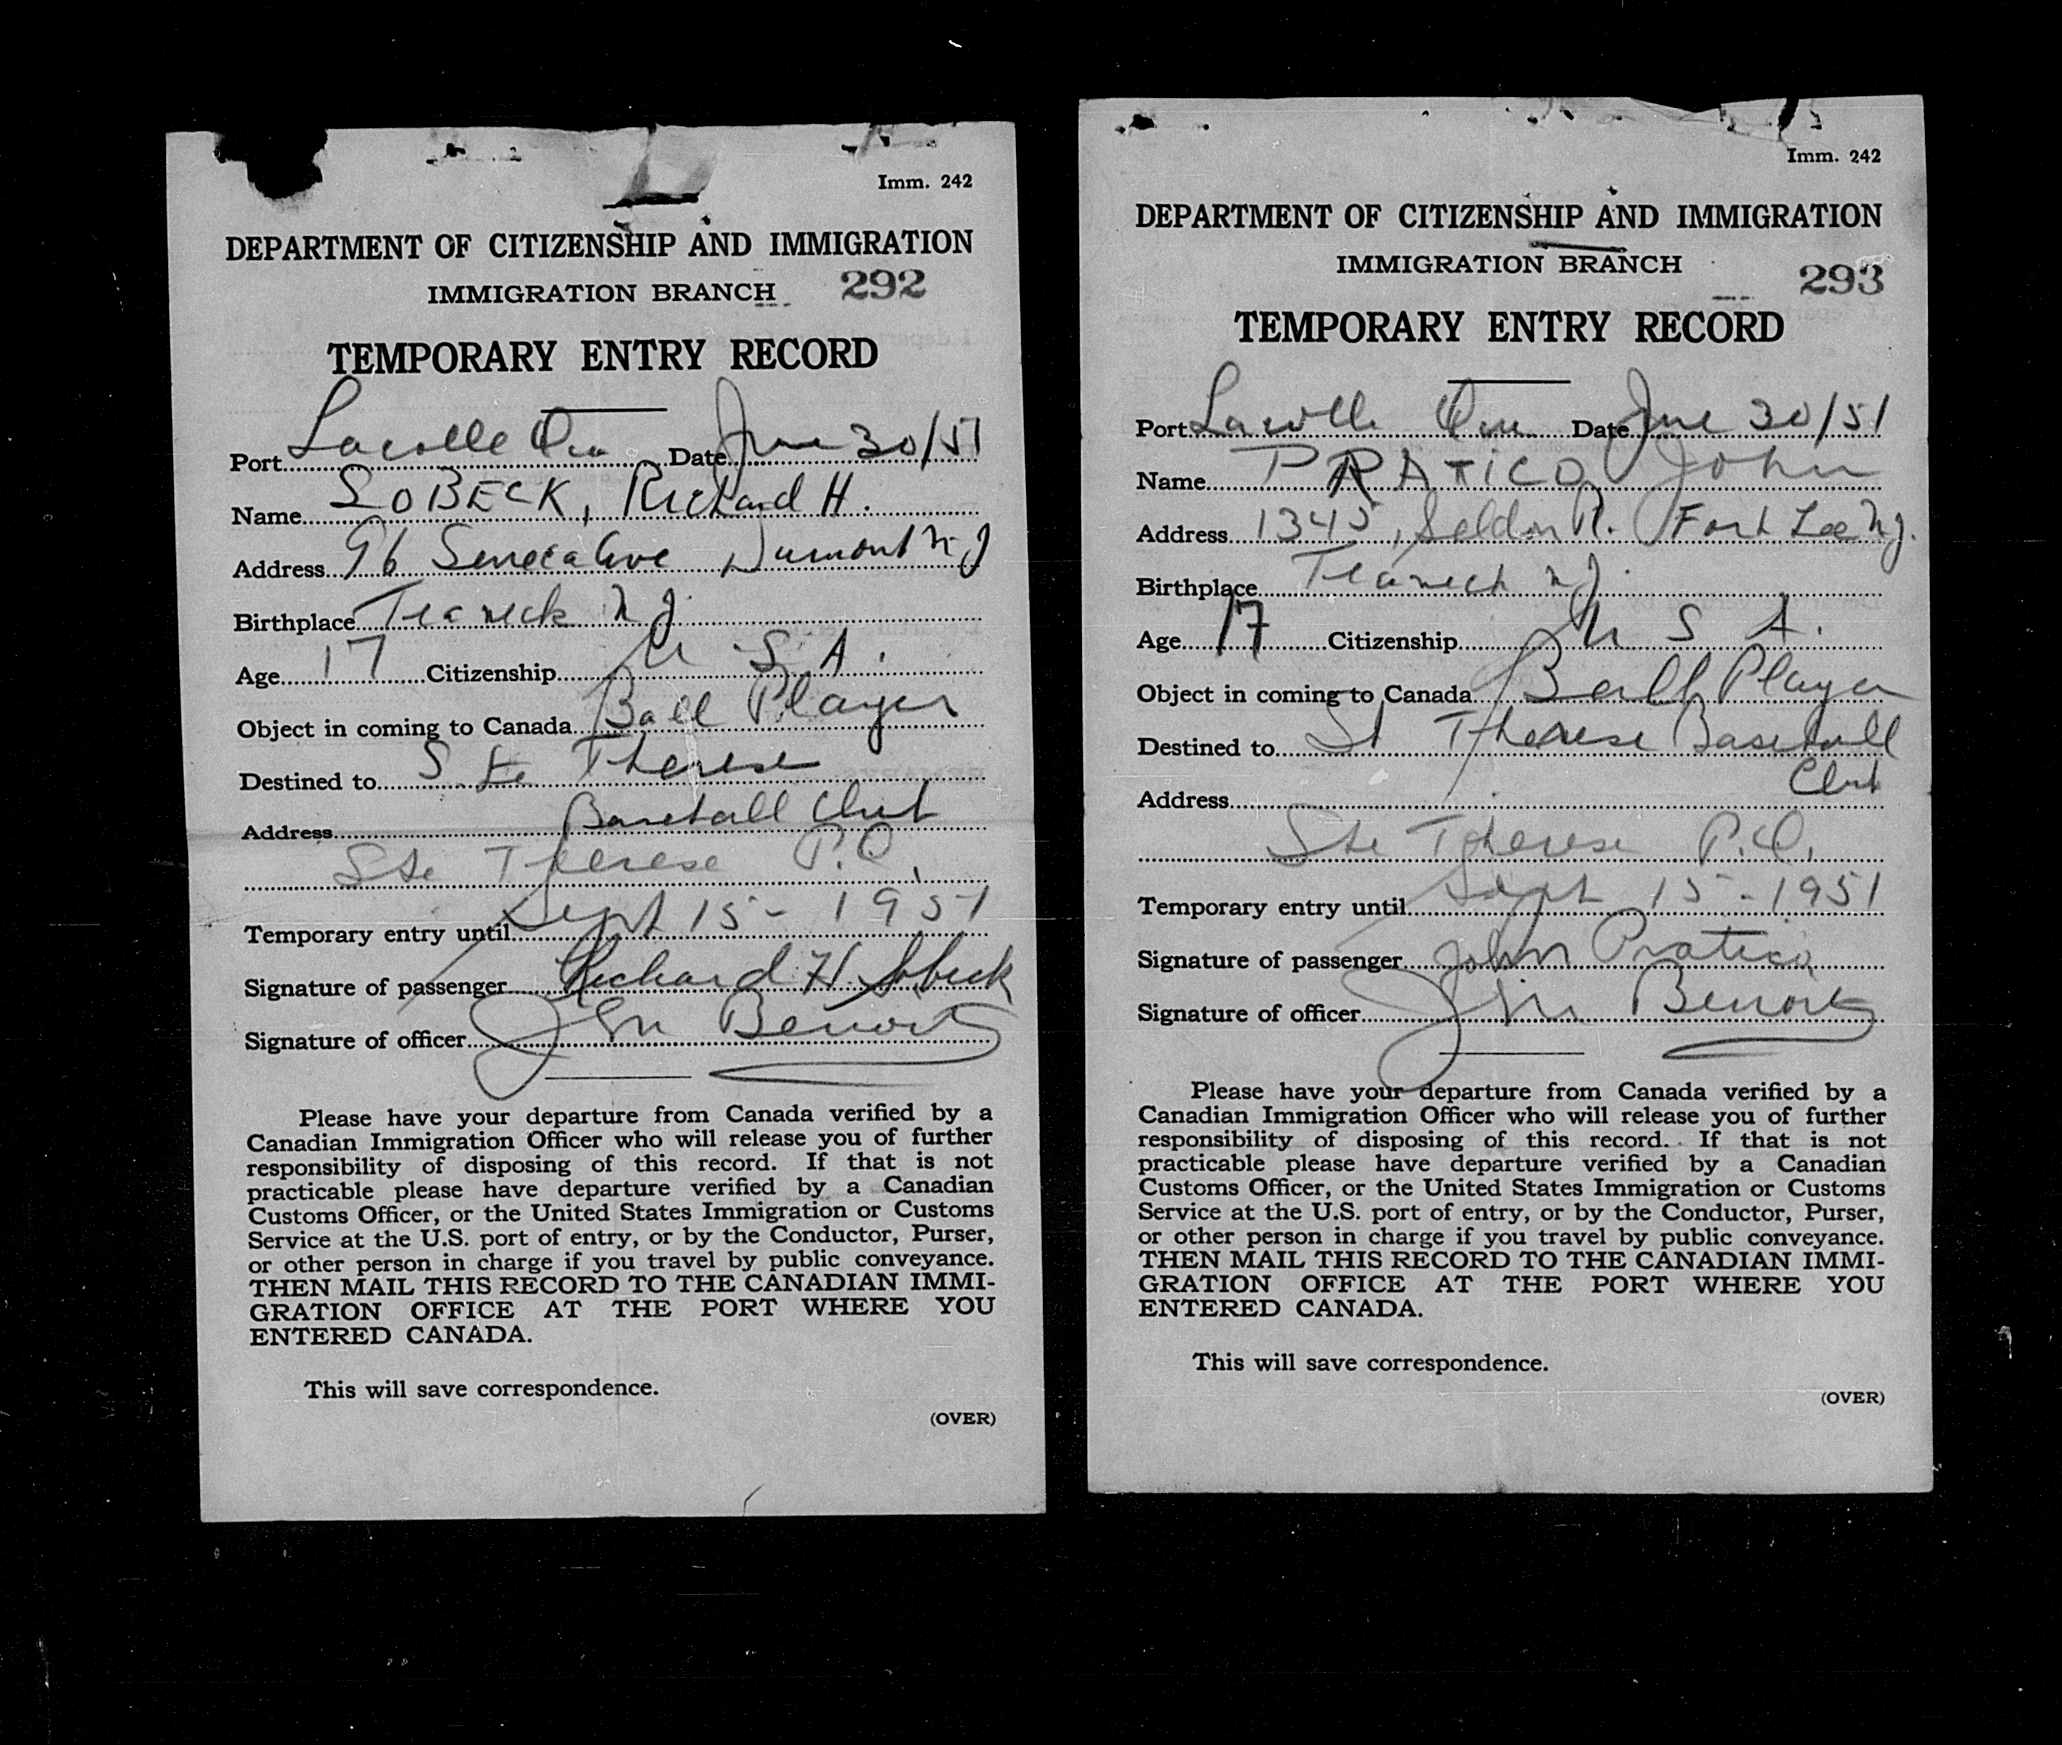 Imm. 242
DEPARTMENT OF CITIZENSHIP AND IMMIGRATION
IMMIGRATION BRANCH 292
TEMPORARY ENTRY RECORD
Port Lacolle Que Date June 30/51
Name SOBECK, Richard H.
Address 96 Seneca Ave Dumont N J
Birthplace Teaneck N J.
Age 17 Citizenship U S A.
Object in coming to Canada Ball Player
Destined to Ste Therese
Address Baseball Club
Ste Therese P.Q.
Temporary entry until Sept 15 - 1951
Signature of passenger Richard H. Sobeck
Signature of officer Benoit
Please have your departure from Canada verified by a
Canadian Immigration Officer who will release you of further
responsibility of disposing of this record. If that is not
practicable please have departure verified by a Canadian
Customs Officer, or the United States Immigration or Customs
Service at the U.S. port of entry, or by the Conductor, Purser,
or other person in charge if you travel by public conveyance.
THEN MAIL THIS RECORD TO THE CANADIAN IMMI-
GRATION OFFICE AT THE PORT WHERE YOU
ENTERED CANADA.
This will save correspondence.
(OVER)
Imm. 242
DEPARTMENT OF CITIZENSHIP AND IMMIGRATION
IMMIGRATION BRANCH 293
TEMPORARY ENTRY RECORD
Port Lacolle Que Date June 30/51
Name PRATICO John
Address 1345, R. Fort Lee N J.
Birthplace Teaneck N J.
Age 17 Citizenship U S A.
Object in coming to Canada Ball Player
Destined to St Therese Baseball
Address Club
Ste Therese P.Q.
Temporary entry until Sept 15 - 1951
Signature of passenger John Pratico
Signature of officer Benoit
Please have your departure from Canada verified by a
Canadian Immigration Officer who will release you of further
responsibility of disposing of this record. If that is not
practicable please have departure verified by a Canadian
Customs Officer, or the United States Immigration or Customs
Service at the U.S. port of entry, or by the Conductor, Purser,
or other person in charge if you travel by public conveyance.
THEN MAIL THIS RECORD TO THE CANADIAN IMMI-
GRATION OFFICE AT THE PORT WHERE YOU
ENTERED CANADA.
This will save correspondence.
(OVER)